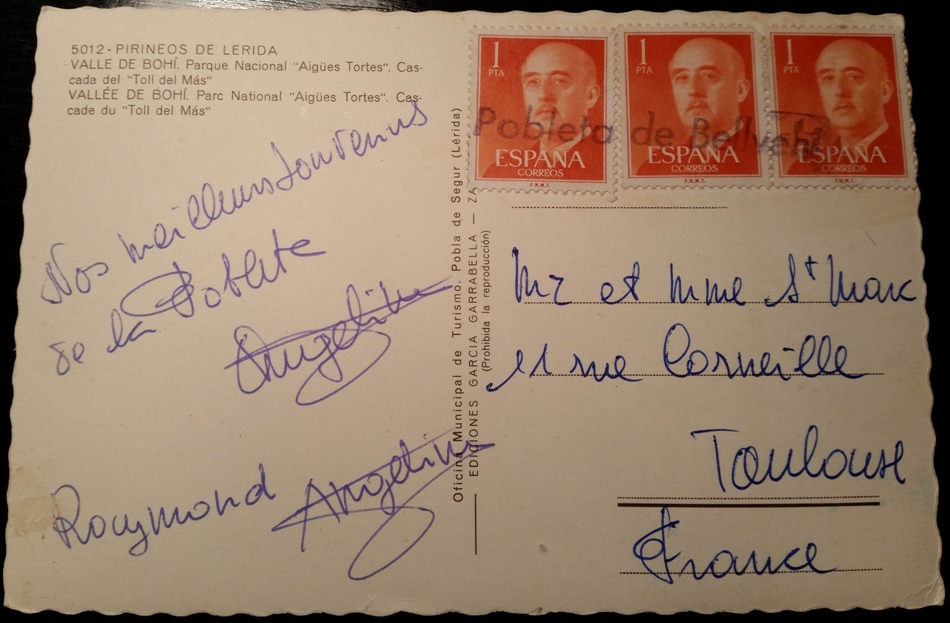 5012-PIRINEOS DE LERIDA
VALLE DE BOHÍ. Parque Nacional "Aigües Tortes". Cas-
cada del "Toll del Más"
VALLÉE DE BOHÍ. Parc National "Aigües Tortes". Cas-
cade du "Toll del Más"
Nos meilleurs souvenirs
de la Pobleta
Raymond
Oficina Municipal de Turismo. Pobla de Segur (Lérida)
EDICIONES GARCIA GARRABELLA — ZA
(Prohibida la reproducción)
1 PTA
ESPAÑA
CORREOS
F.N.M.T.
1 PTA
ESPAÑA
CORREOS
F.N.M.T.
1 PTA
ESPAÑA
CORREOS
F.N.M.T.
Pobleta de Bellvehi
Mr et Mme St Marc
11 rue Corneille
Toulouse
France